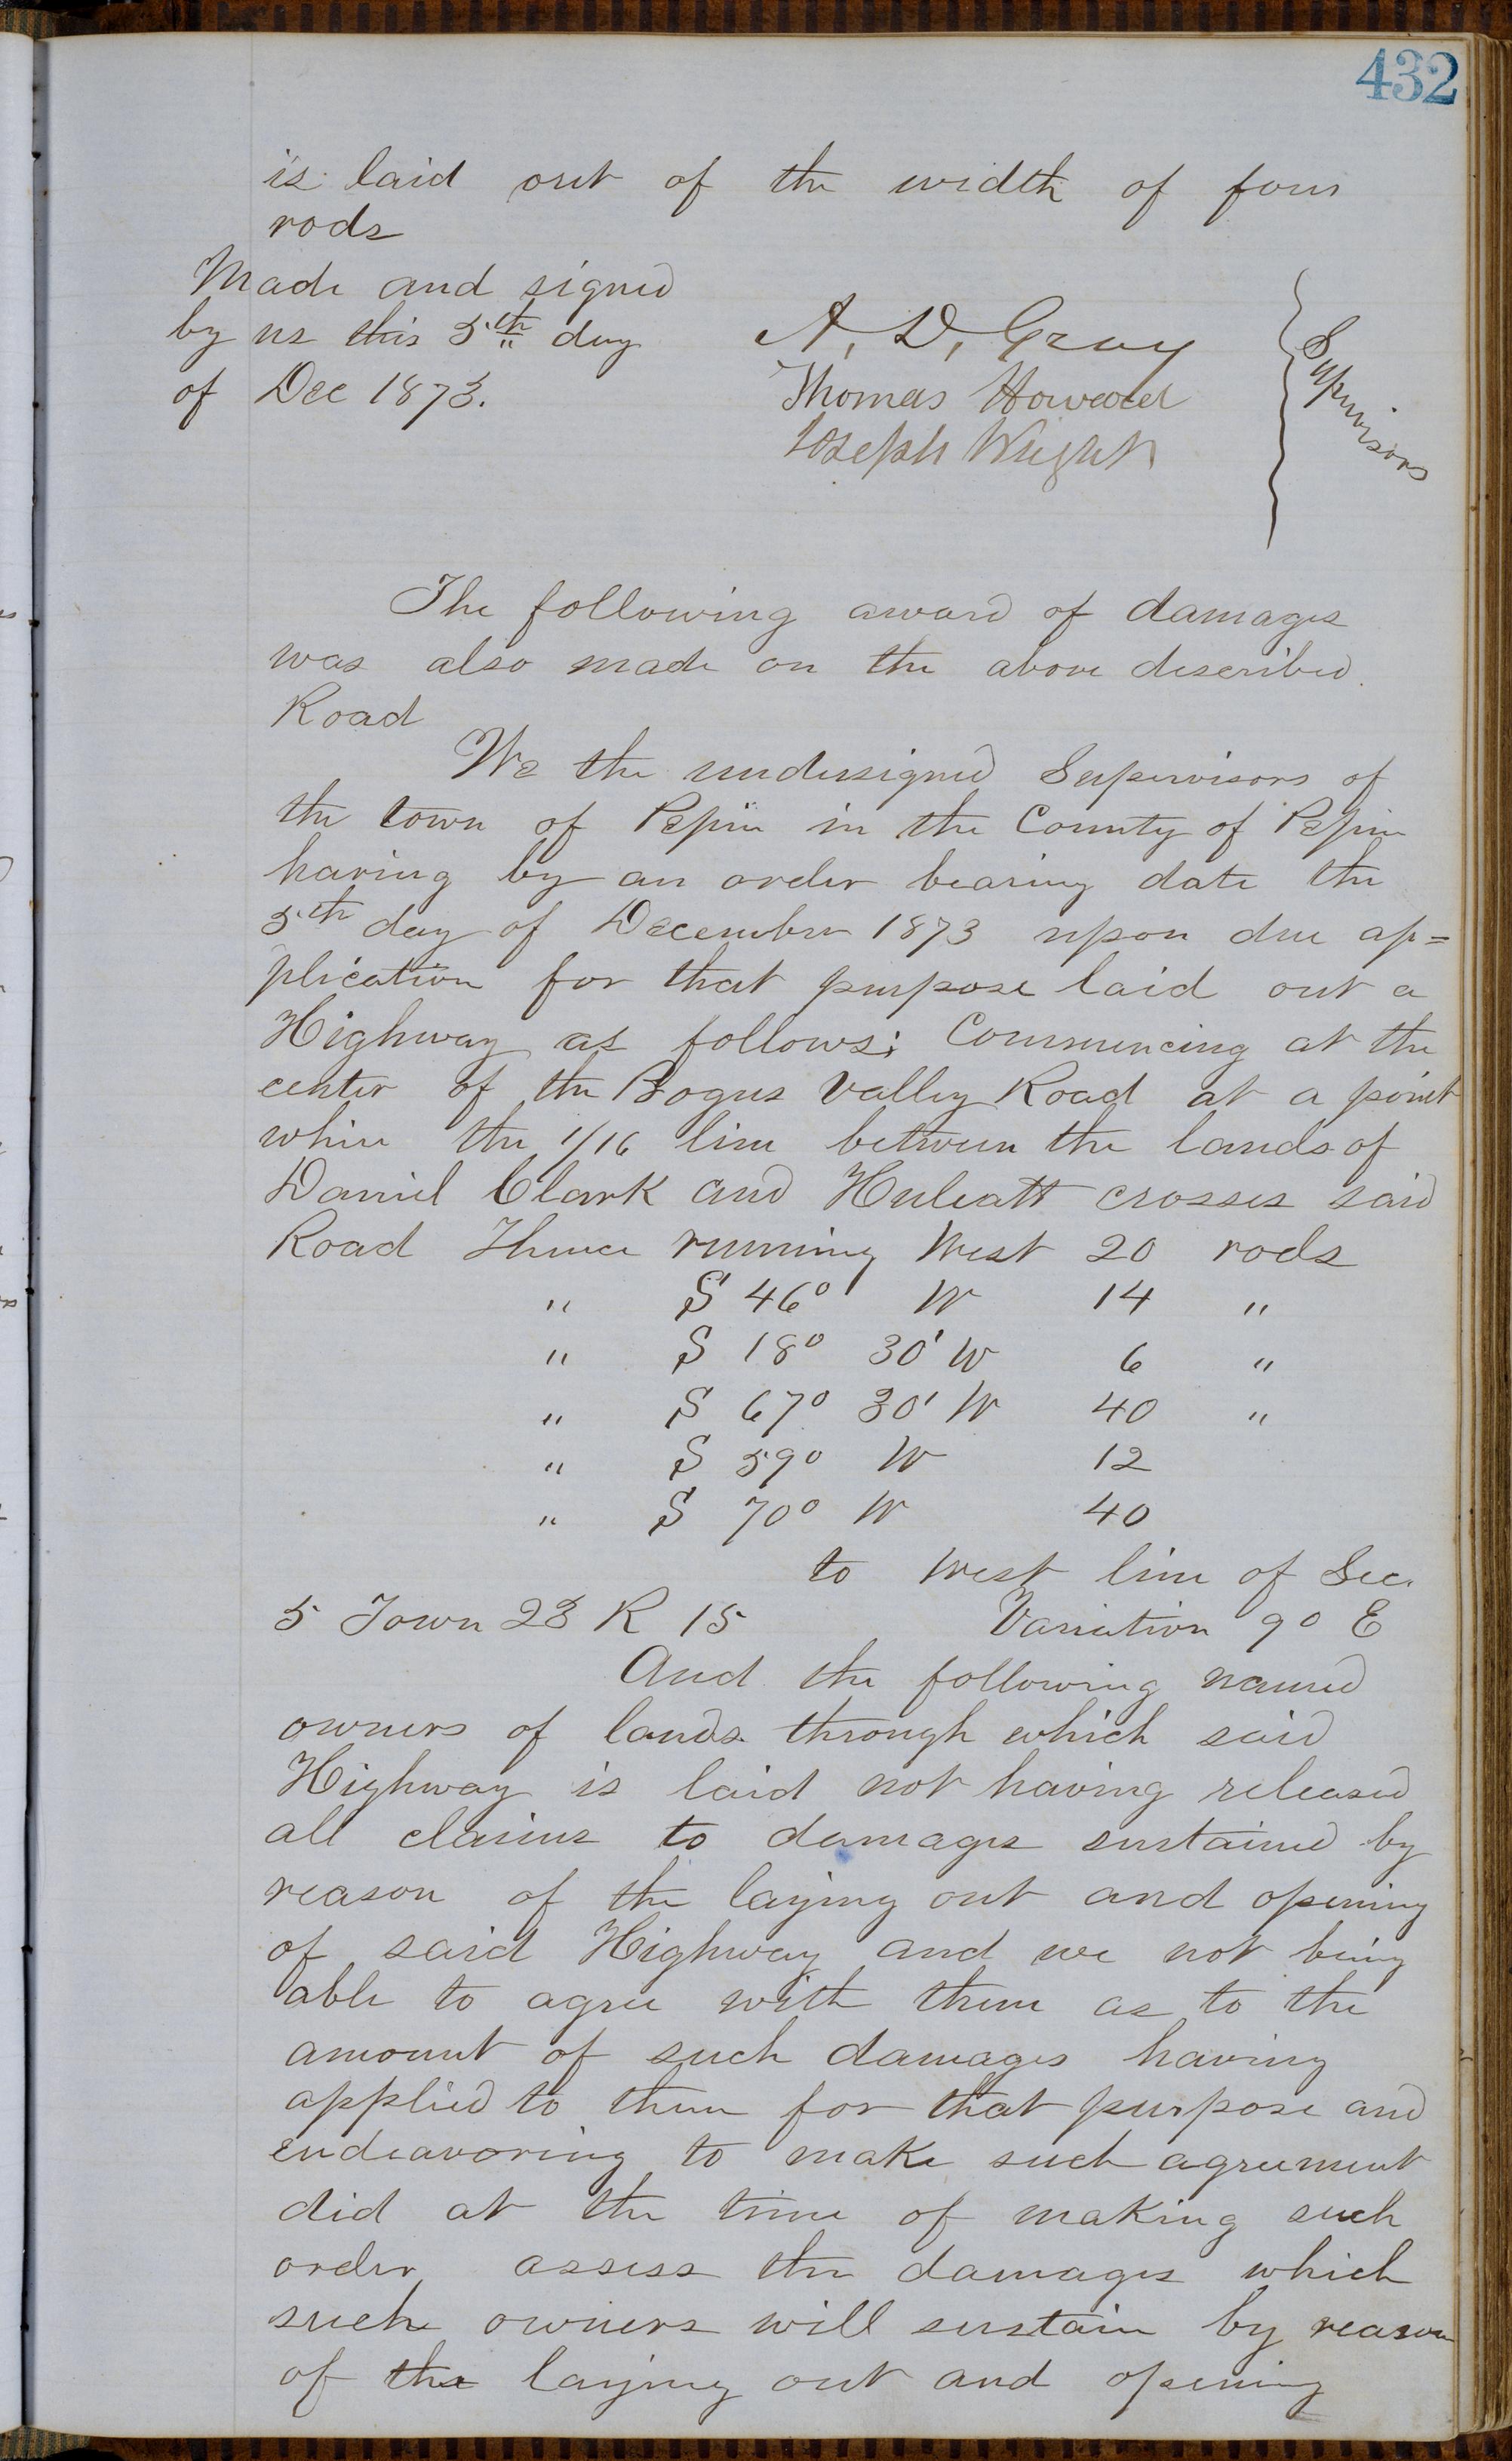 432
is laid out of the width of four
rods
Made and signed
by us this 5th day
of Dec 1873.
A. D. Gray
Thomas Howard
Joseph Wright
Supervisors
The following award of damages
was also made on the above described
Road
We the undersigned Supervisors of
the town of Pepin in the County of Pepin
having by an order bearing date the
5th day of December 1873 upon due ap=
plication for that purpose laid out a
Highway as follows: Commencing at the
center of the Bogus Valley Road at a point
where the 1/16 line between the lands of
Daniel Clark and Huleatt crosses said
Road Thence running West 20 rods
" S 46° W 14 "
" S 18° 30' W 6 "
" S 67° 30' W 40 "
" S 59° W 12
" S 70° W 40
to West line of Sec.
5 Town 23 R 15 Variation 9° E
And the following named
owners of lands through which said
Highway is laid not having released
all claims to damages sustained by
reason of the laying out and opening
of said Highway and we not being
able to agree with them as to the
amount of such damages having
applied to them for that purpose and
endeavoring to make such agreement
did at the time of making such
order assess the damages which
such owners will sustain by reason
of the laying out and opening